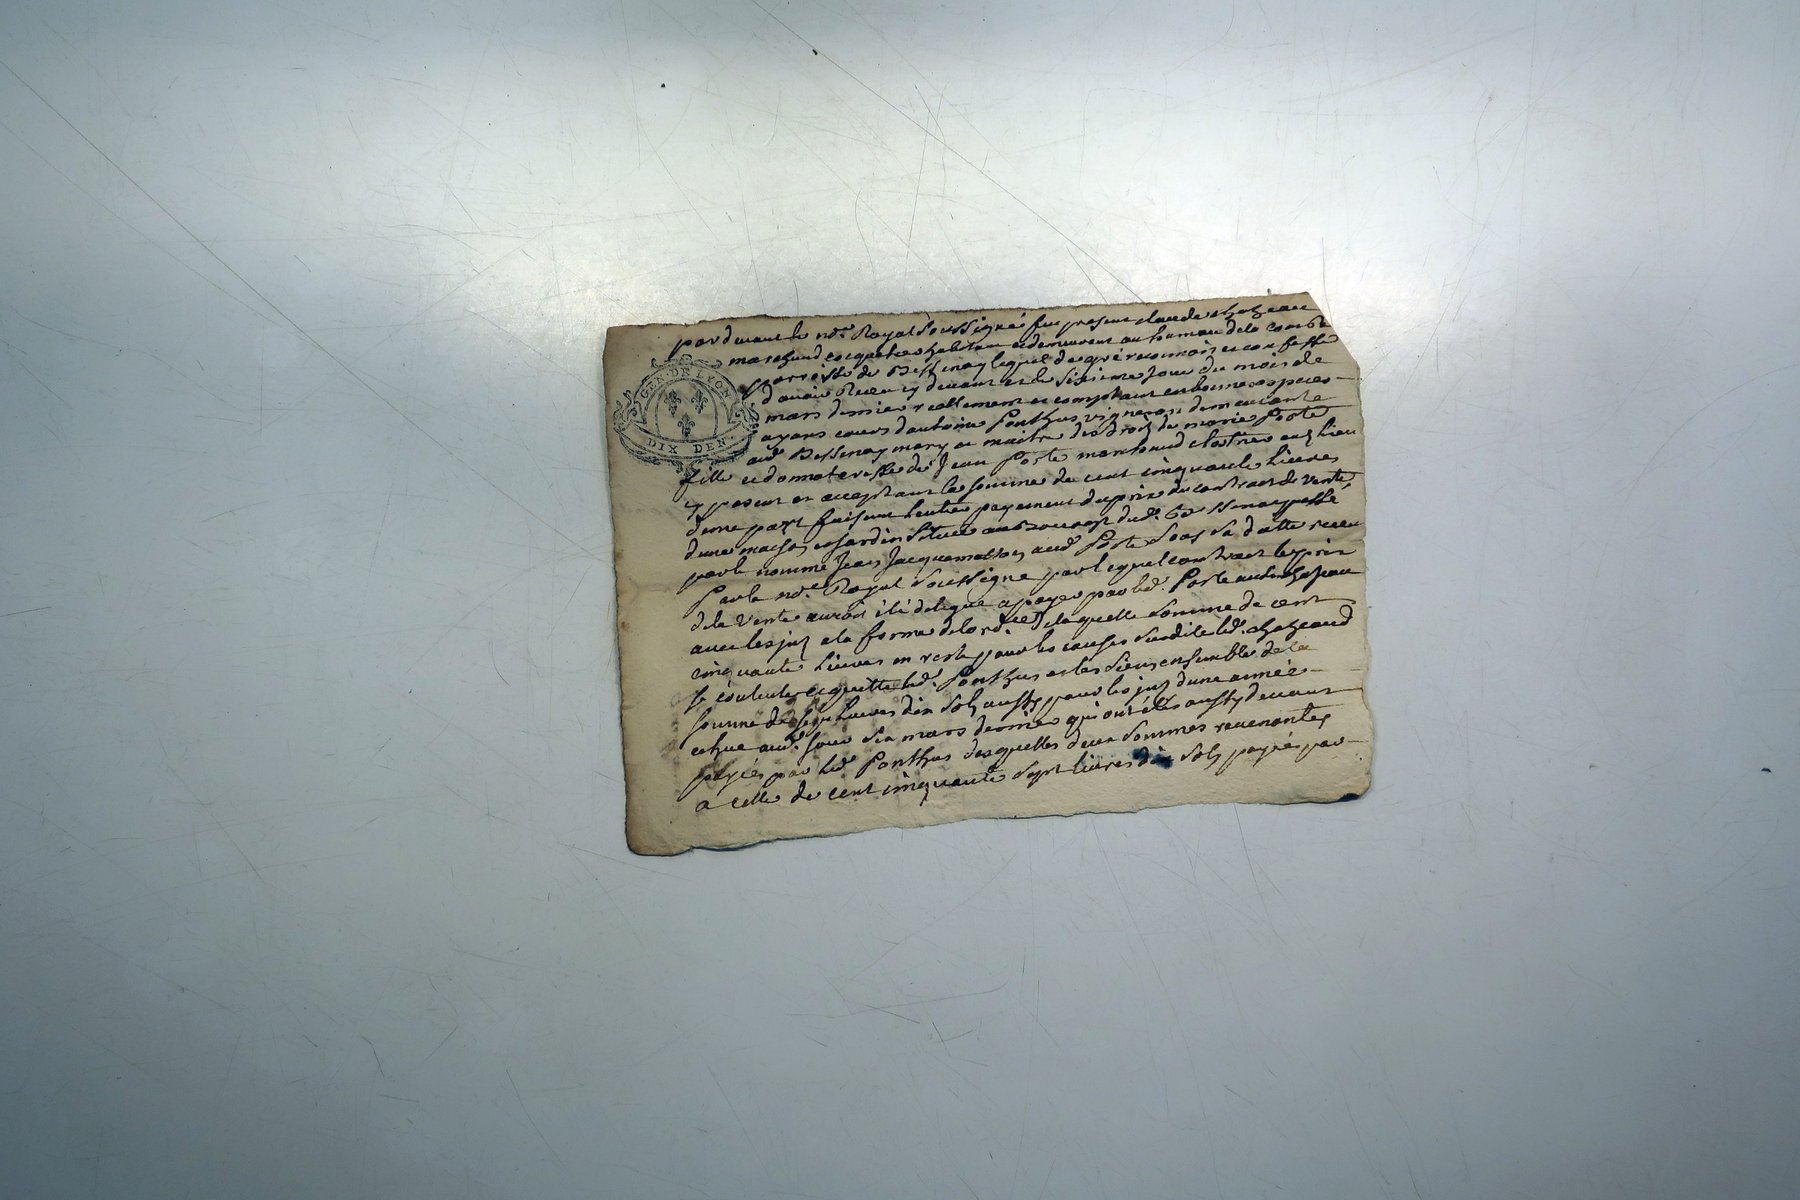 GEN. DE LYON
DIX DEN.
pardevant le no.re Royal soussigné fut present claude chazeau
marchand coquetier habitant et demeurant au hameau dela Combe
parroisse de Bessenay lequel de gré reconnoit et confesse
d'avoir Receu cy devant et le sixieme jour du mois de
mars dernier reellement et comptant en bonnes especes
ayans cours d'antoine Ponthus vigneron demeurant
aud. Bessenay mary et maitre des droits de marie Poste
fille et donnateresse de Jean Poste marchand
cy present et acceptant la somme de cent cinquante livres
dune part faisant l'entier payement du prix du contract de vente
dune maison et jardin situés au bourg dud. Bessenay passé
par le nommé Jean aud. Poste sous sa datte receu
Par le no.re Royal soussigné par lequel contract le prix
dela vente auroit été delegué a payer par led. Poste audit chazeau
avec les jnt a la forme de lord.ce de laquelle somme de cent
cinquante livres en reste pour les causes susdites led. chazeaud
se contente et quitte led. Ponthus et les siens ensemble de la
somme de sept livres dix sols aussy pour les jnt dune année
echue aud. jour six mars dernier qui ont étés aussy devant
payés par led. Ponthus desquelles deux sommes revenantes
a celle de cent cinquante sept livres dix sols payés par